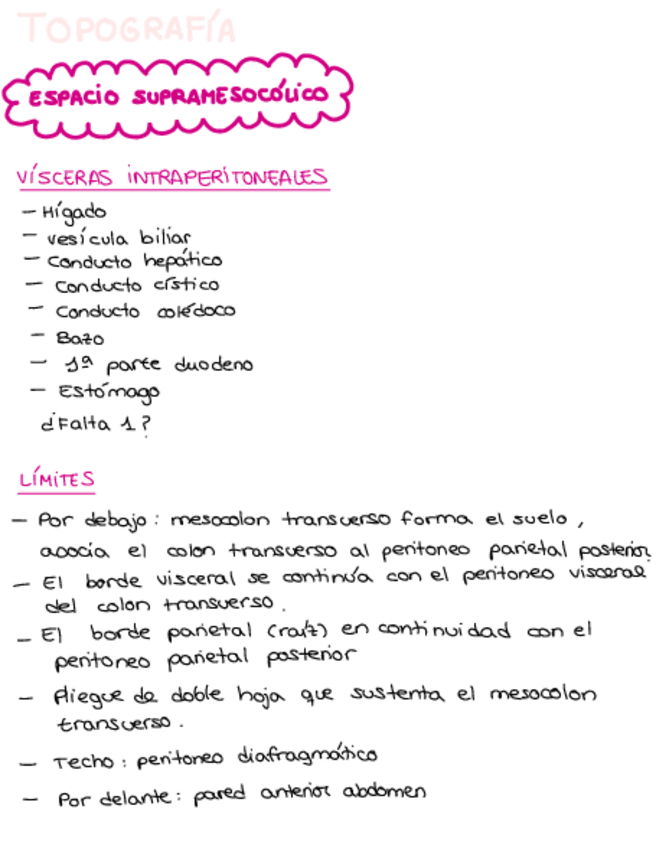 TOPOGRAFÍA
ESPACIO SUPRAMESOCÓLICO
VÍSCERAS INTRAPERITONEALES
- Hígado
- vesícula biliar
- Conducto hepático
- Conducto cístico
- Conducto colédoco
- Bazo
- 1ª parte duodeno
- Estómago
¿Falta 1?
LÍMITES
- Por debajo: mesocolon transverso forma el suelo,
asocia el colon transverso al peritoneo parietal posterior
- El borde visceral se continúa con el peritoneo visceral
del colon transverso.
- El borde parietal (raíz) en continuidad con el
peritoneo parietal posterior
- Pliegue de doble hoja que sustenta el mesocolon
transverso.
- Techo: peritoneo diafragmático
- Por delante: pared anterior abdomen